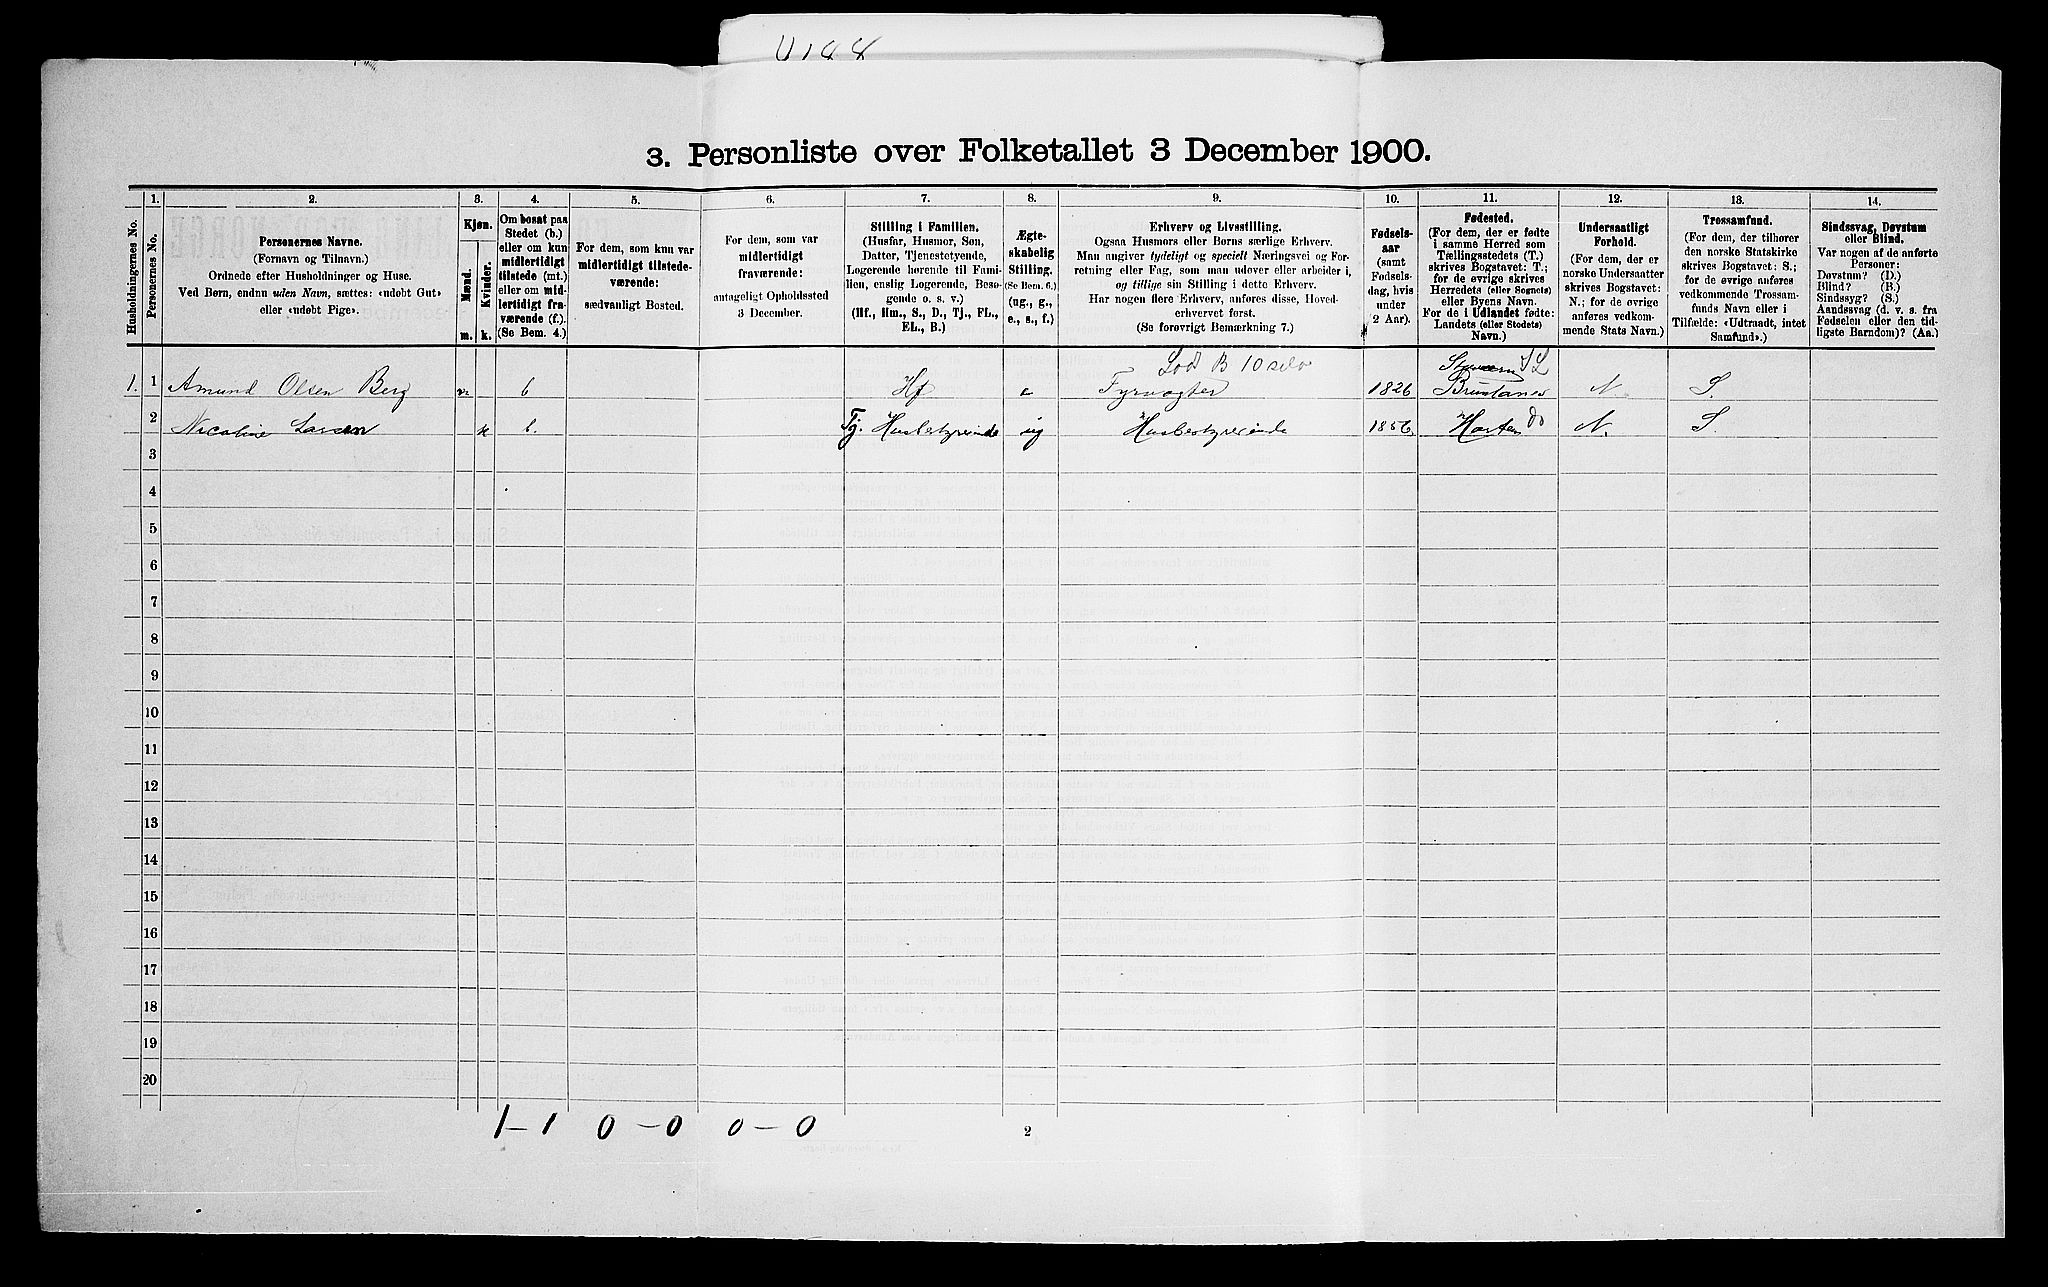 3. Personliste over Folketallet 3 December 1900.
Husholdningernes No.
1.
Personernes No.
2.
Personernes Navne.
(Fornavn og Tilnavn.)
Ordnede efter Husholdninger og Huse.
Ved Børn, endnu uden Navn, sættes: «udøbt Gut»
eller «udøbt Pige».
3.
Kjøn.
Mænd.
Kvinder.
m.
k.
4.
Om bosat paa
Stedet (b.)
eller om kun
midlertidigt
tilstede (mt.)
eller om mid-
lertidigt fra-
værende (f.).
(Se Bem. 4.)
5.
For dem, som kun var
midlertidigt tilstede-
værende:
sædvanligt Bosted.
6.
For dem, som var
midlertidigt
fraværende:
antageligt Opholdssted
3 December.
7.
Stilling i Familien.
(Husfar, Husmor, Søn,
Datter, Tjenestetyende,
Logerende hørende til Fami-
lien, enslig Logerende, Besø-
gende o. s. v.)
(Hf., Hm., S., D., Tj., FL.,
EL., B.)
8.
Ægte-
skabelig
Stilling.
(Se Bem. 6.)
(ug., g.,
e., s., f.)
9.
Erhverv og Livsstilling.
Ogsaa Husmors eller Børns særlige Erhverv.
Man angiver tydeligt og specielt Næringsvei og For-
retning eller Fag, som man udøver eller arbeider i,
og tillige sin Stilling i dette Erhverv.
Har nogen flere Erhverv, anføres disse, Hoved-
erhvervet først.
(Se forøvrigt Bemærkning 7.)
10.
Fødsels-
aar
(samt
Fødsels-
dag, hvis
under
2 Aar).
11.
Fødested.
(For dem, der er fødte
i samme Herred som
Tællingsstedets (T.)
skrives Bogstavet: T.;
for de øvrige skrives
Herredets (eller Sognets)
eller Byens Navn.
For de i Udlandet fødte:
Landets (eller Stedets)
Navn.)
12.
Undersaatligt
Forhold.
(For dem, der er
norske Undersaatter
skrives Bogstavet:
N.; for de øvrige
anføres vedkom-
mende Stats Navn.)
13.
Trossamfund.
(For dem, der tilhører
den norske Statskirke
skrives Bogstavet: S.;
for de øvrige anføres
vedkommende Trossam-
funds Navn eller i
Tilfælde: «Udtraadt, intet
Samfund».)
14.
Sindssvag, Døvstum
eller Blind.
Var nogen af de anførte
Personer:
Døvstum? (D.)
Blind? (B.)
Sindssyg? (S.)
Aandssvag (d. v. s. fra
Fødselen eller den tid-
ligste Barndom)? (Aa.)
1. 1 Amund Olsen Berg m b Hf e Fyrvogter 1826 N. S.
2 Nicoline Larsen k b. Tj. Husbestyrerinde ug Husbestyrerinde 1856. Horten do N. S.
3
4
5
6
7
8
9
10
11
12
13
14
15
16
17
18
19
20
1 – 1 0 – 0 0 – 0
2